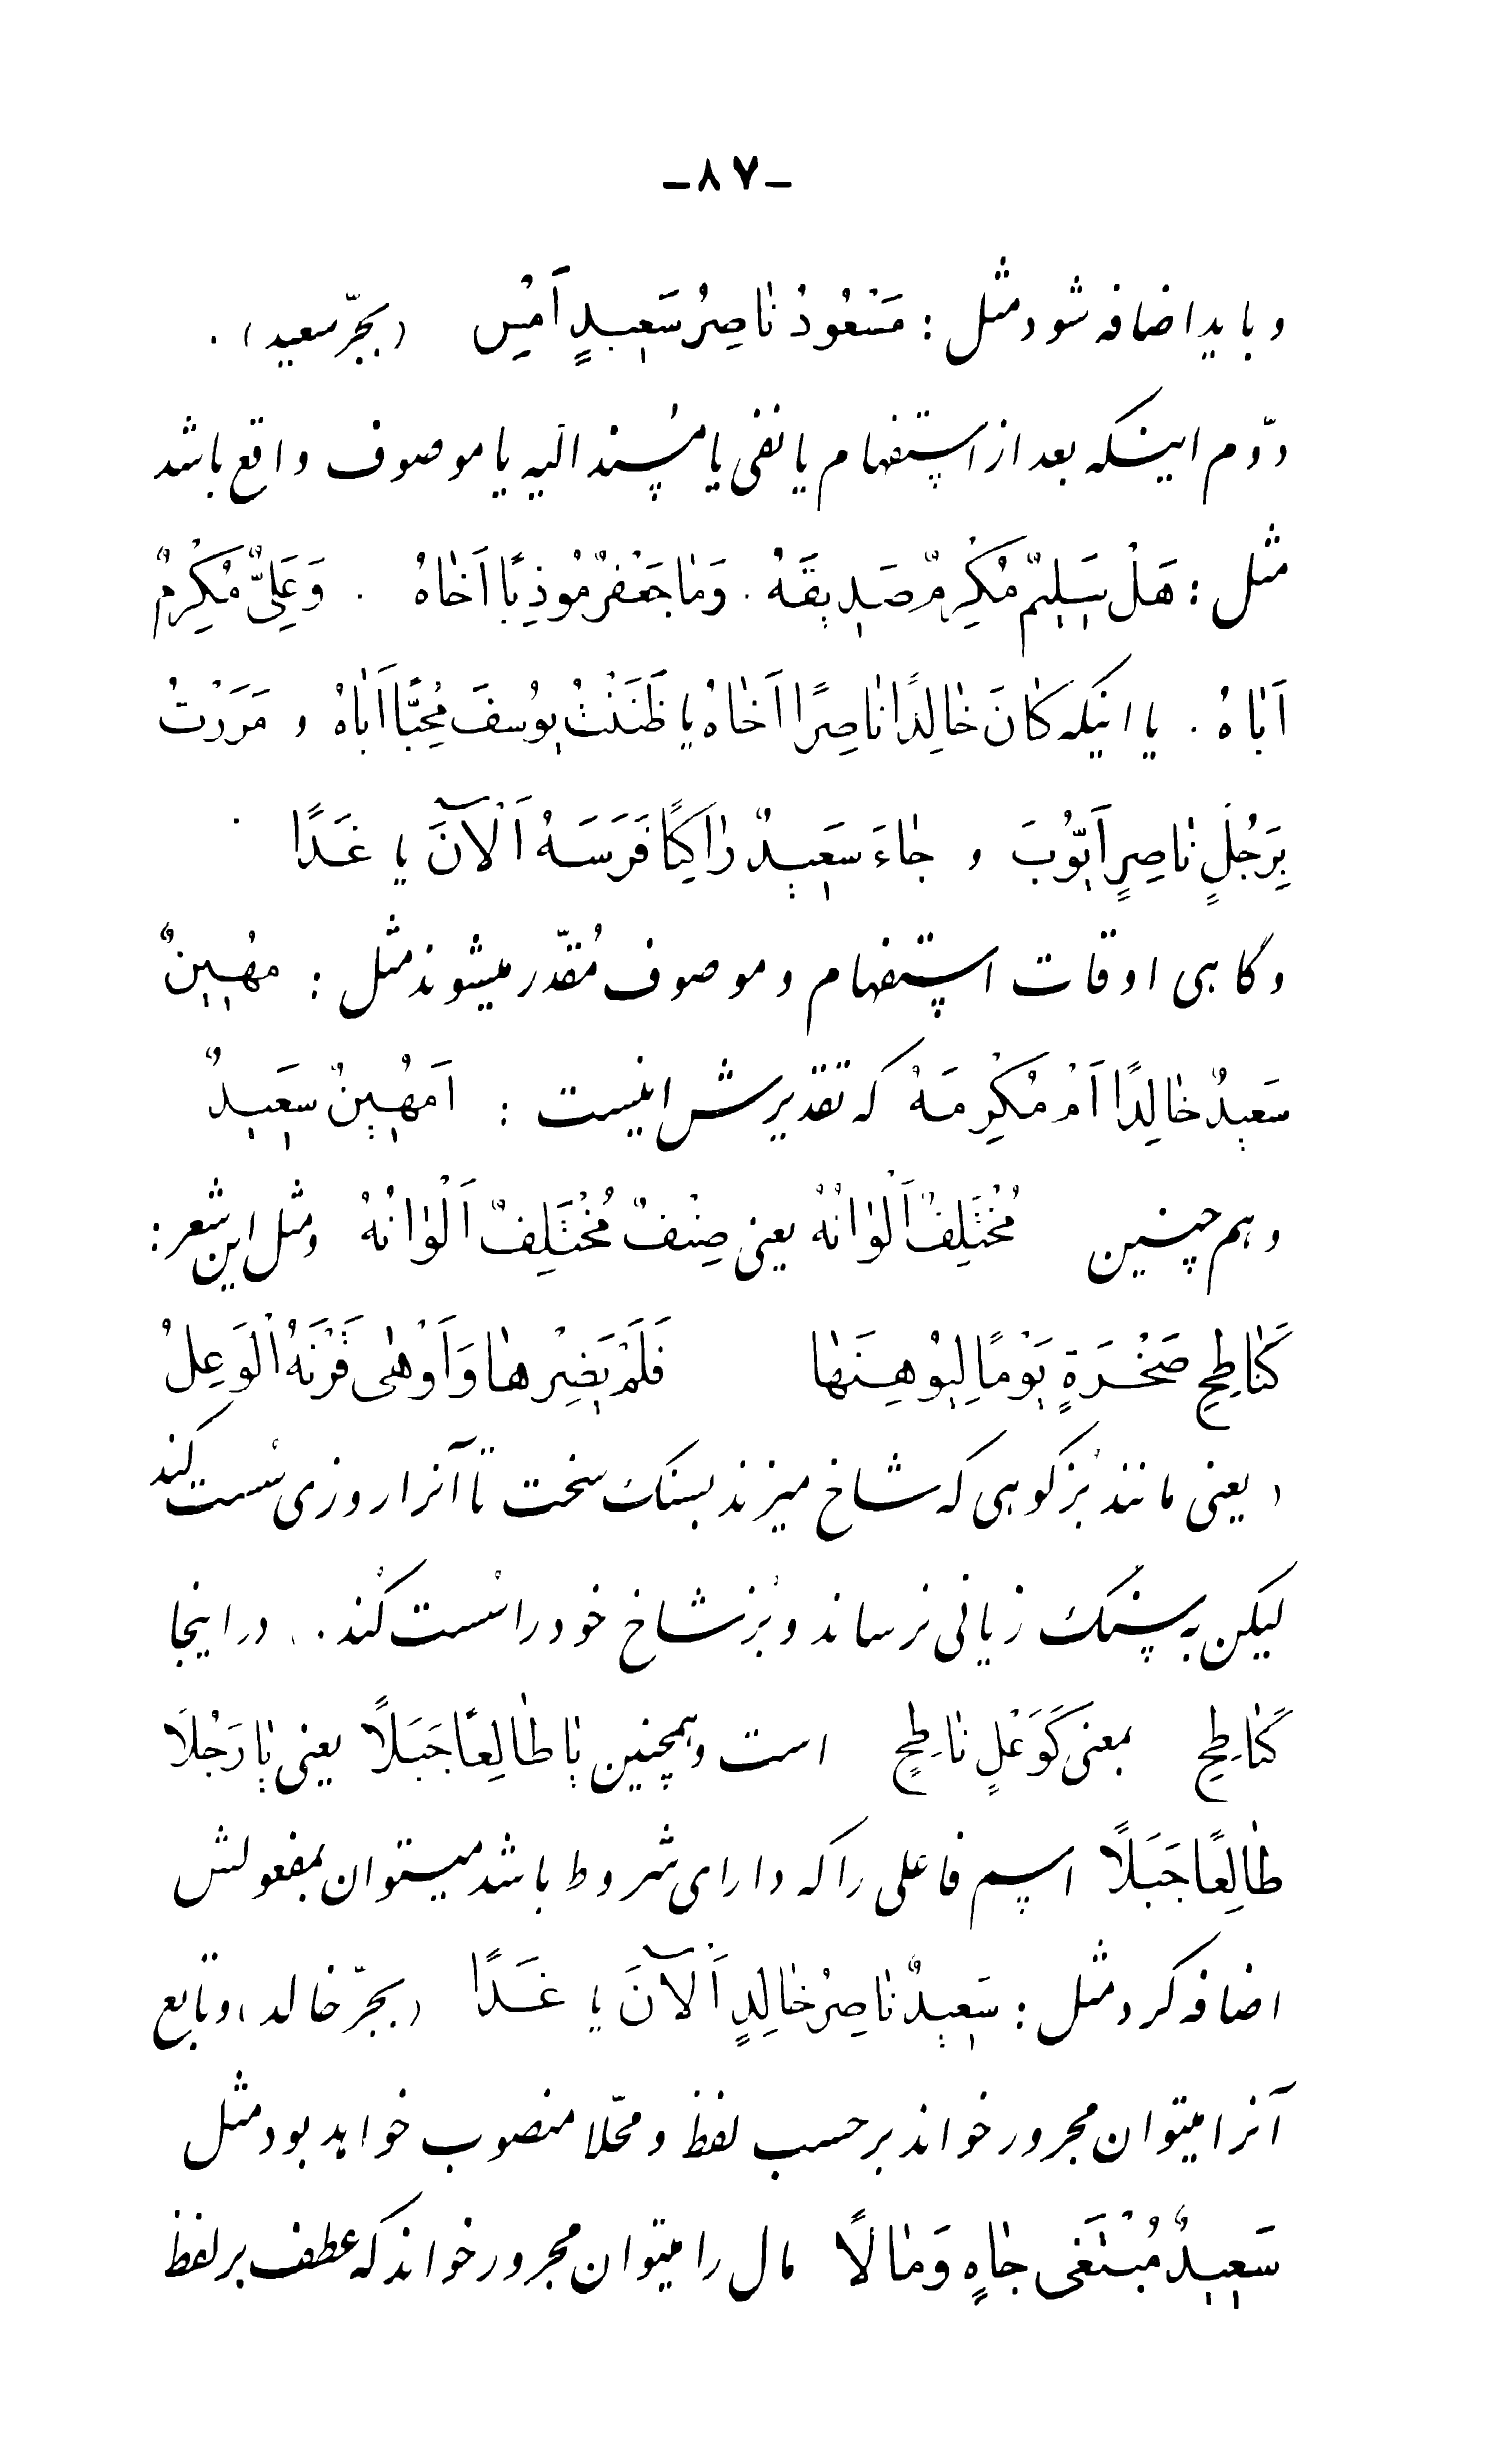 -۸۷-
و باید اضافه شود مثل : مَسْعُودُ نٰاصِرُ سَعیدٍ اَمْسِ (بجرّ سعید) .
دوّم اینکه بعد از استفهام یا نفی یا مُسند الیه یا موصوف واقع باشد
مثل : هَلْ سَلیمٌ مُکْرِمٌ صَدیقَهُ . وَمٰا جَعْفَرٌ مُوذِیًا اَخٰاهُ . وَ عَلِیٌّ مُکْرِمٌ
اَبٰاهُ . یا اینکه کٰانَ خٰالِدًا نٰاصِرًا اَخٰاهُ یا ظَنَنْتُ یوُسفَ مُحِبًّا اَبٰاهُ و مَرَرْتُ
بِرَجُلٍ نٰاصِرٍ اَیّوُبَ و جٰاءَ سَعیدٌ رٰاکِبًا فَرَسَهُ اَلْآنَ یا غَدًا .
و گاهی اوقات استفهام و موصوف مُقدّر میشوند مثل : مُهینٌ
سَعیدٌ خٰالِدًا اَمْ مُکْرِمَهُ که تقدیرش اینست : اَمُهینٌ سَعیدٌ
و هم چنین مُخْتَلِفٌ اَلْوٰانُهُ یعنی صِنْفٌ مُخْتَلِفٌ اَلْوٰانُهُ و مثل این شعر :
کَنٰاطِحٍ صَخْرَةٍ یَوْمًا لِیوُهِنَهٰا فَلَمْ یَضِرْهٰا وَ اَوْهٰی قَرْنَهُ الْوَعِلُ
( یعنی مانند بُز کوهی که شاخ میزند بسنگ سخت تا آنرا روزی سُست کند
لیکن به سنگ زیانی نرساند و بُز شاخ خود را سُست کُند . ) در اینجا
کَنٰاطِحٍ بمعنی کَوَعْلٍ نٰاطِحٍ است و همچنین یٰا طٰالِعًا جَبَلًا یعنی یٰا رَجُلًا
طٰالِعًا جَبَلًا اسم فاعلی را که دارای شروط باشد میتوان بمفعولش
اضافه کرد مثل : سَعیدٌ نٰاصِرُ خٰالِدٍ اَلْآنَ یا غَدًا (بجرّ خالد) و تابع
آنرا میتوان مجرور خواند بر حسب لفظ و محّلا منصوب خواهد بود مثل
سَعیدٌ مُبْتَغی جٰاهٍ وَ مٰالًا مال را میتوان مجرور خواند که عطف بر لفظ